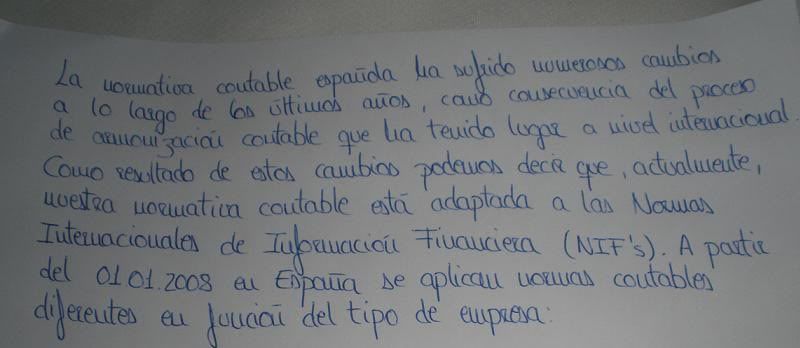 La normativa contable española ha sufrido numerosos cambios
a lo largo de los últimos años, como consecuencia del proceso
de armonización contable que ha tenido lugar a nivel internacional.
Como resultado de estos cambios podemos decir que, actualmente,
nuestra normativa contable está adaptada a las Normas
Internacionales de Información Financiera (NIF's). A partir
del 01.01.2008 en España se aplican normas contables
diferentes en función del tipo de empresa: